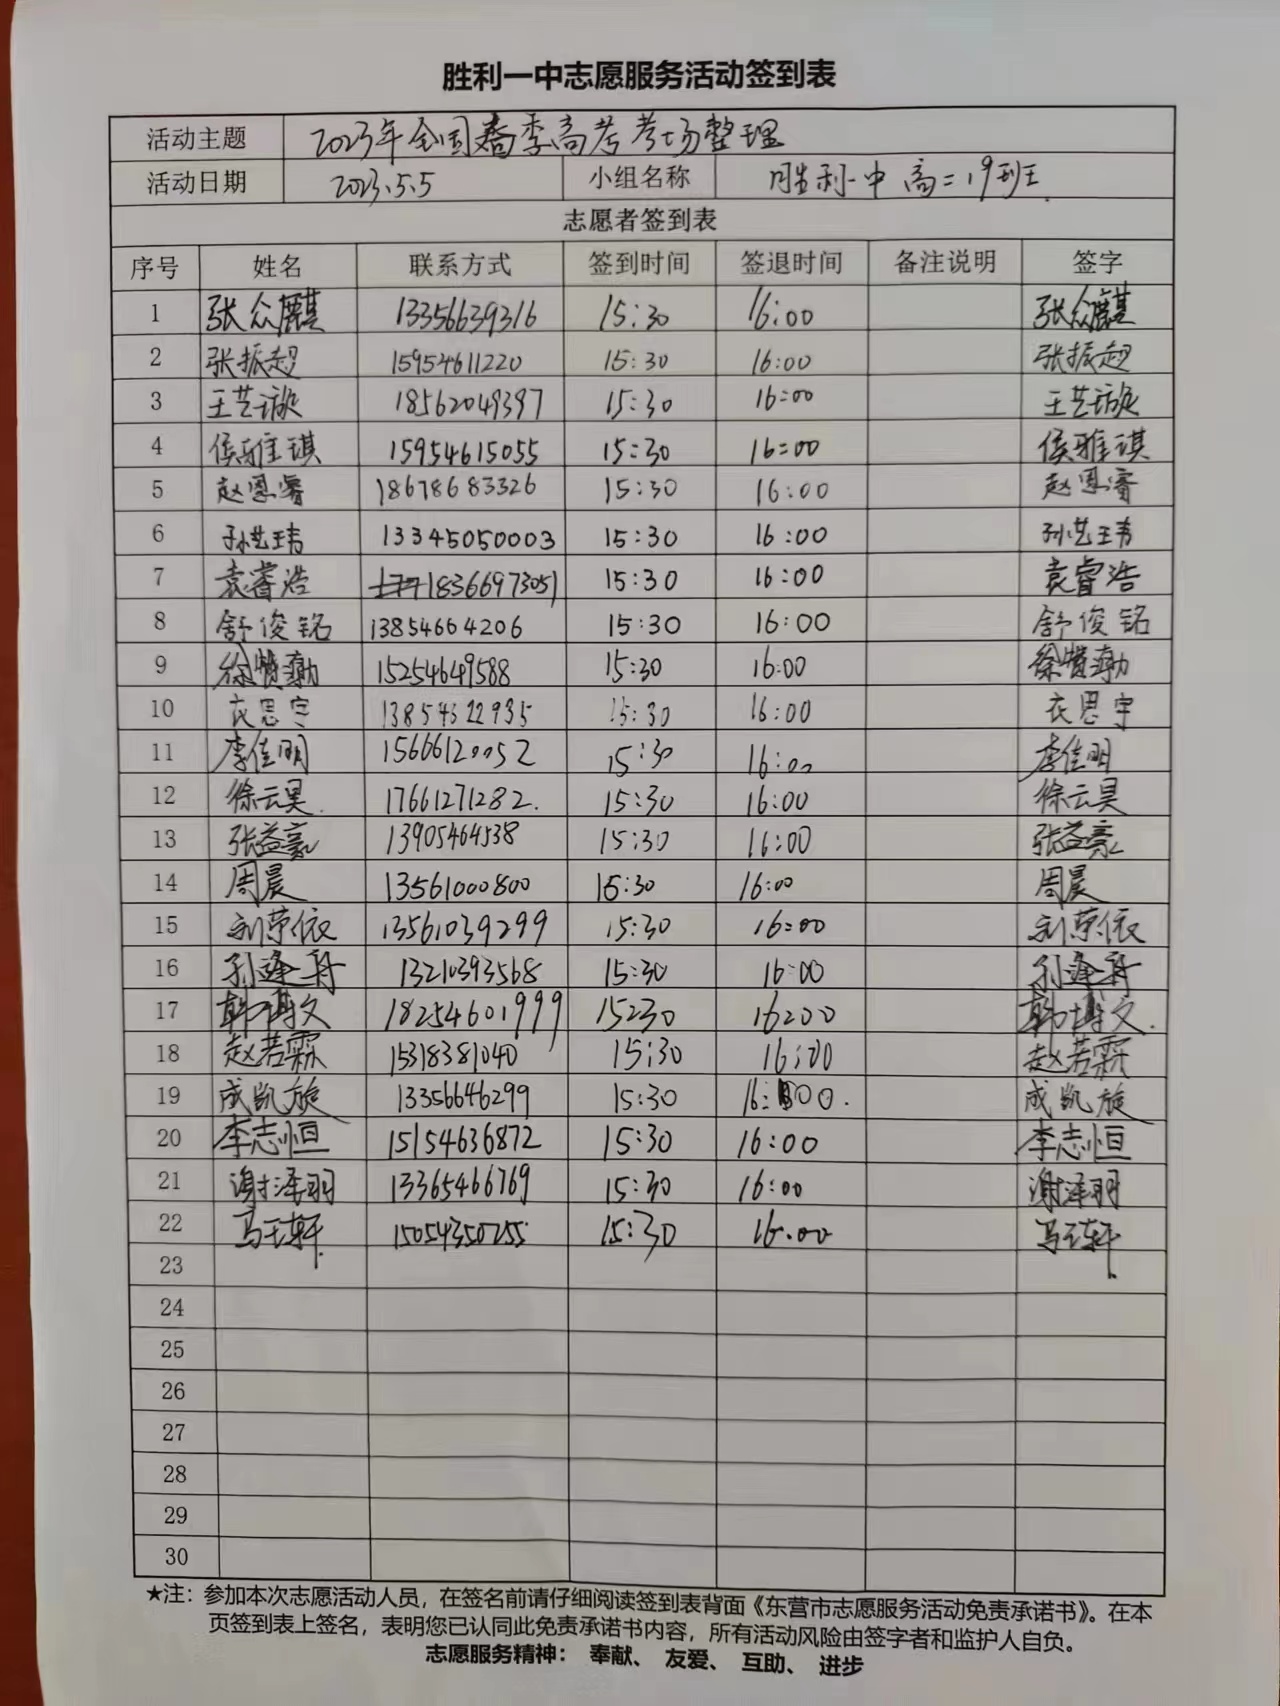 胜利一中志愿服务活动签到表
活动主题 2023年全国春季高考考场整理
活动日期 2023.5.5 小组名称 胜利一中高二.19班
志愿者签到表
序号 姓名 联系方式 签到时间 签退时间 备注说明 签字
1 张众麒 13356639316 15:30 16:00 张众麒
2 张振超 15954611220 15:30 16:00 张振超
3 王艺璇 18562049397 15:30 16:00 王艺璇
4 侯雅琪 15954615055 15:30 16:00 侯雅琪
5 赵恩睿 18678683326 15:30 16:00 赵恩睿
6 孙艺玮 13345050003 15:30 16:00 孙艺玮
7 袁睿浩 18366973051 15:30 16:00 袁睿浩
8 舒俊铭 13854664206 15:30 16:00 舒俊铭
9 徐赞勋 15254649588 15:30 16:00 徐赞勋
10 衣思宇 13854322935 15:30 16:00 衣思宇
11 李佳明 15666120052 15:30 16:00 李佳明
12 徐云昊. 17661271282. 15:30 16:00 徐云昊
13 张益豪 13905464538 15:30 16:00 张益豪
14 周晨 13561000800 15:30 16:00 周晨
15 刘荣依 13561039299 15:30 16:00 刘荣依
16 孙逢舜 13210393568 15:30 16:00 孙逢舜
17 韩博文 18254601999 15:30 16:00 韩博文.
18 赵若霖 15318381040 15:30 16:00 赵若霖
19 成凯旋 13356646299 15:30 16:00. 成凯旋
20 李志恒 15154636872 15:30 16:00 李志恒
21 谢泽羽 13365466769 15:30 16:00 谢泽羽
22 马玉轩 15054350255 15:30 16:00 马玉轩
23
24
25
26
27
28
29
30
★注：参加本次志愿活动人员，在签名前请仔细阅读签到表背面《东营市志愿服务活动免责承诺书》。在本
页签到表上签名，表明您已认同此免责承诺书内容，所有活动风险由签字者和监护人自负。
志愿服务精神： 奉献、 友爱、 互助、 进步